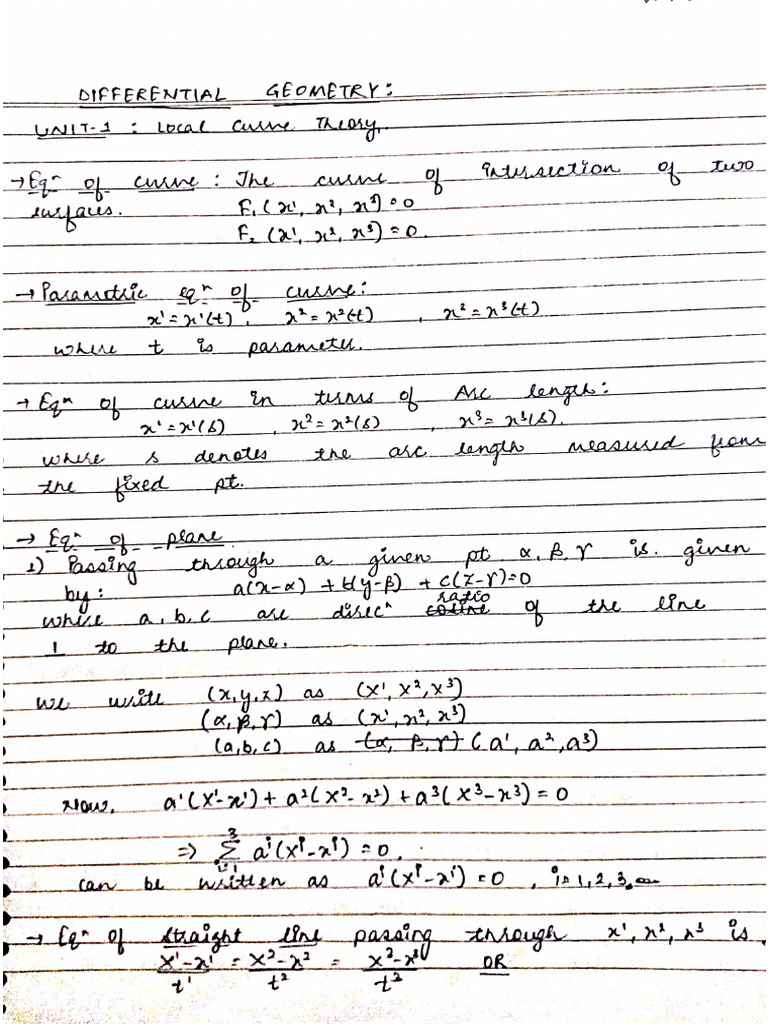 DIFFERENTIAL GEOMETRY:
UNIT-1 : Local Curve Theory.
→ Eqⁿ of curve : The curve of intersection of two
surfaces. F₁(x¹, x², x³) = 0
F₂ (x¹, x², x³) = 0.
→ Parametric eqⁿ of curve:
x¹ = x¹(t), x² = x²(t) , x² = x³(t)
where t is parameter.
→ Eqⁿ of curve in terms of Arc length:
x¹ = x¹(s) , x² = x²(s) , x³ = x³(s).
where s denotes the arc length measured from
the fixed pt.
→ Eqⁿ of plane
1) Passing through a given pt α, β, γ is given
by: a(x-α) + b(y-β) + c(z-γ) = 0
where a, b, c are direcⁿ cosine ratio of the line
⊥ to the plane.
We write (x,y,z) as (X¹, X², X³)
(α, β, γ) as (x¹, x², x³)
(a,b,c) as (α, β, γ) (a¹, a², a³)
Now, a¹(X¹-x¹) + a²(X²-x²) + a³(X³-x³) = 0
⇒ Σ³ᵢ₌₁ aⁱ(Xⁱ-xⁱ) = 0.
can be written as aⁱ(Xⁱ-xⁱ) = 0 , i = 1,2,3.
→ Eqⁿ of straight line passing through x¹, x², x³ is.
X¹-x¹/t¹ = X²-x²/t² = X²-x³/t² OR